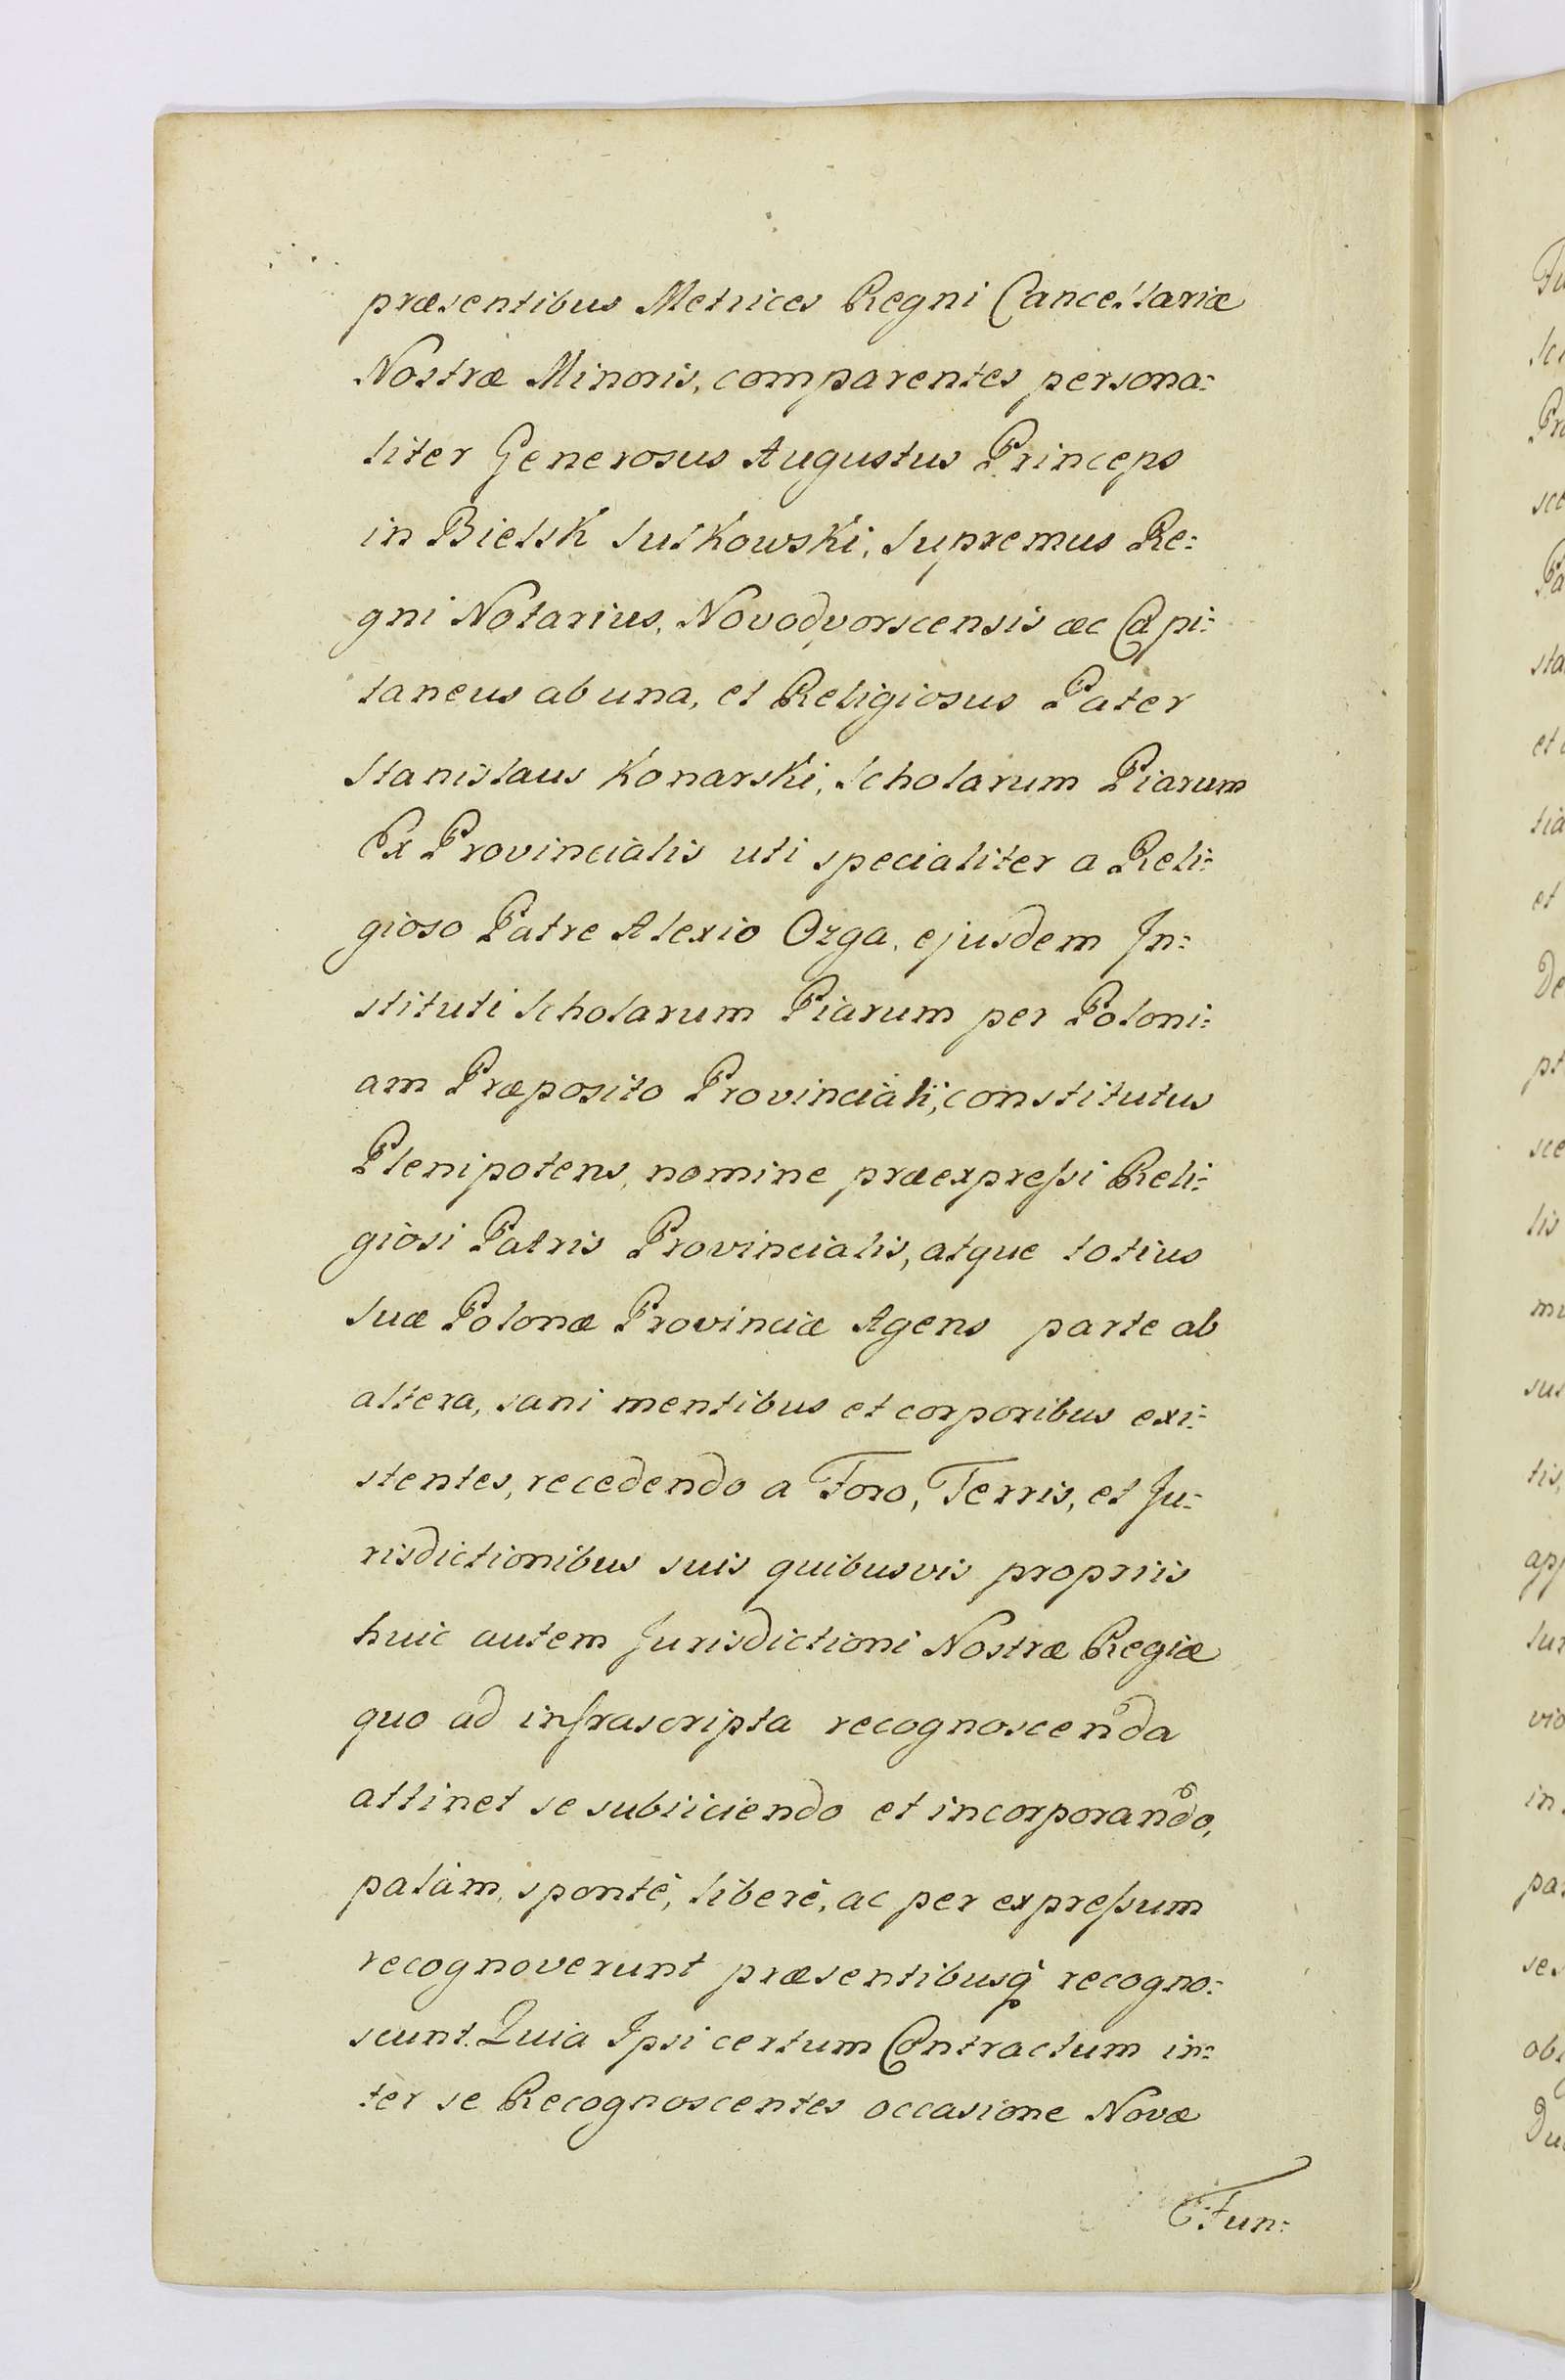 præsentibus Metrices Regni Cancellariæ
Nostræ Minoris, comparentes persona:
liter Generosus Augustus Princeps
in Bielsk Sułkowski, Supremus Re:
gni Notarius, Novodvorscensis &c Capi:
taneus ab una, et Religiosus Pater
Stanislaus Konarski, Scholarum Piarum
Ex Provincialis uti specialiter a Reli:
gioso Patre Alexio Ozga, ejusdem In:
stituti Scholarum Piarum per Poloni:
am Præposito Provinciali, constitutus
Plenipotens, nomine præexpreſsi Reli:
giosi Patris Provincialis, atque totius
Suæ Polonæ Provinciæ Agens parte ab
altera, sani mentibus et corporibus exi:
stentes, recedendo a Foro, Terris, et Ju:
risdictionibus suis quibusvis propriis
huic autem Jurisdictioni Nostræ Regiæ
quo ad infrascripta recognoscenda
attinet se subiiciendo et incorporando,
palàm, spontè, liberè, ac per expreſsum
recognoverunt præsentibusq̀ recogno:
scunt. Quia Ipsi certum Contractum in:
ter se Recognoscentes occasione Novæ
Fun: